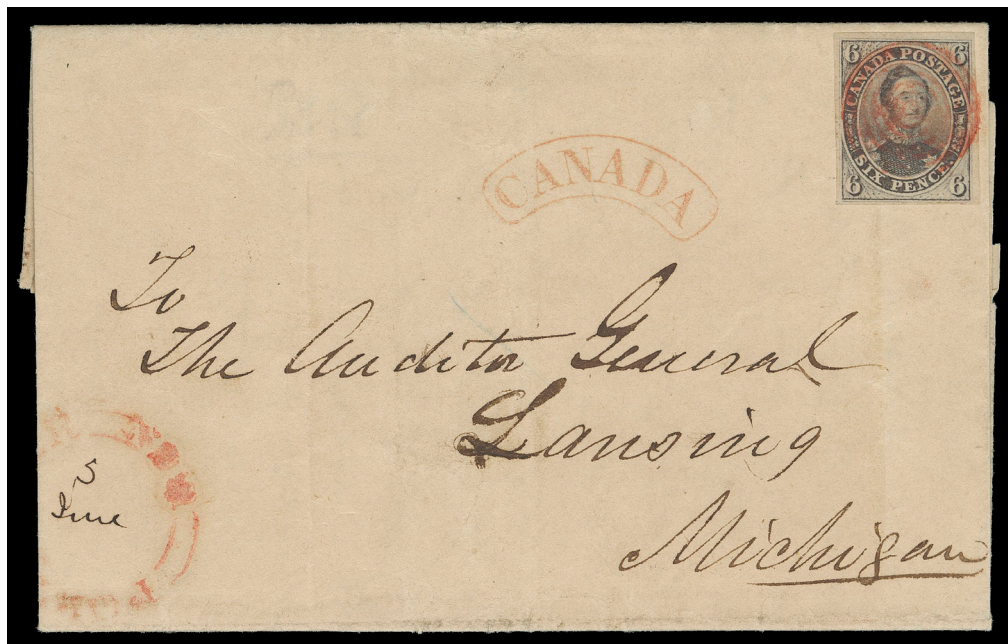 6 6
CANADA POSTAGE
SIX PENCE.
6 6
CANADA
To
The Auditor General
Lansing
Michigan
5
June